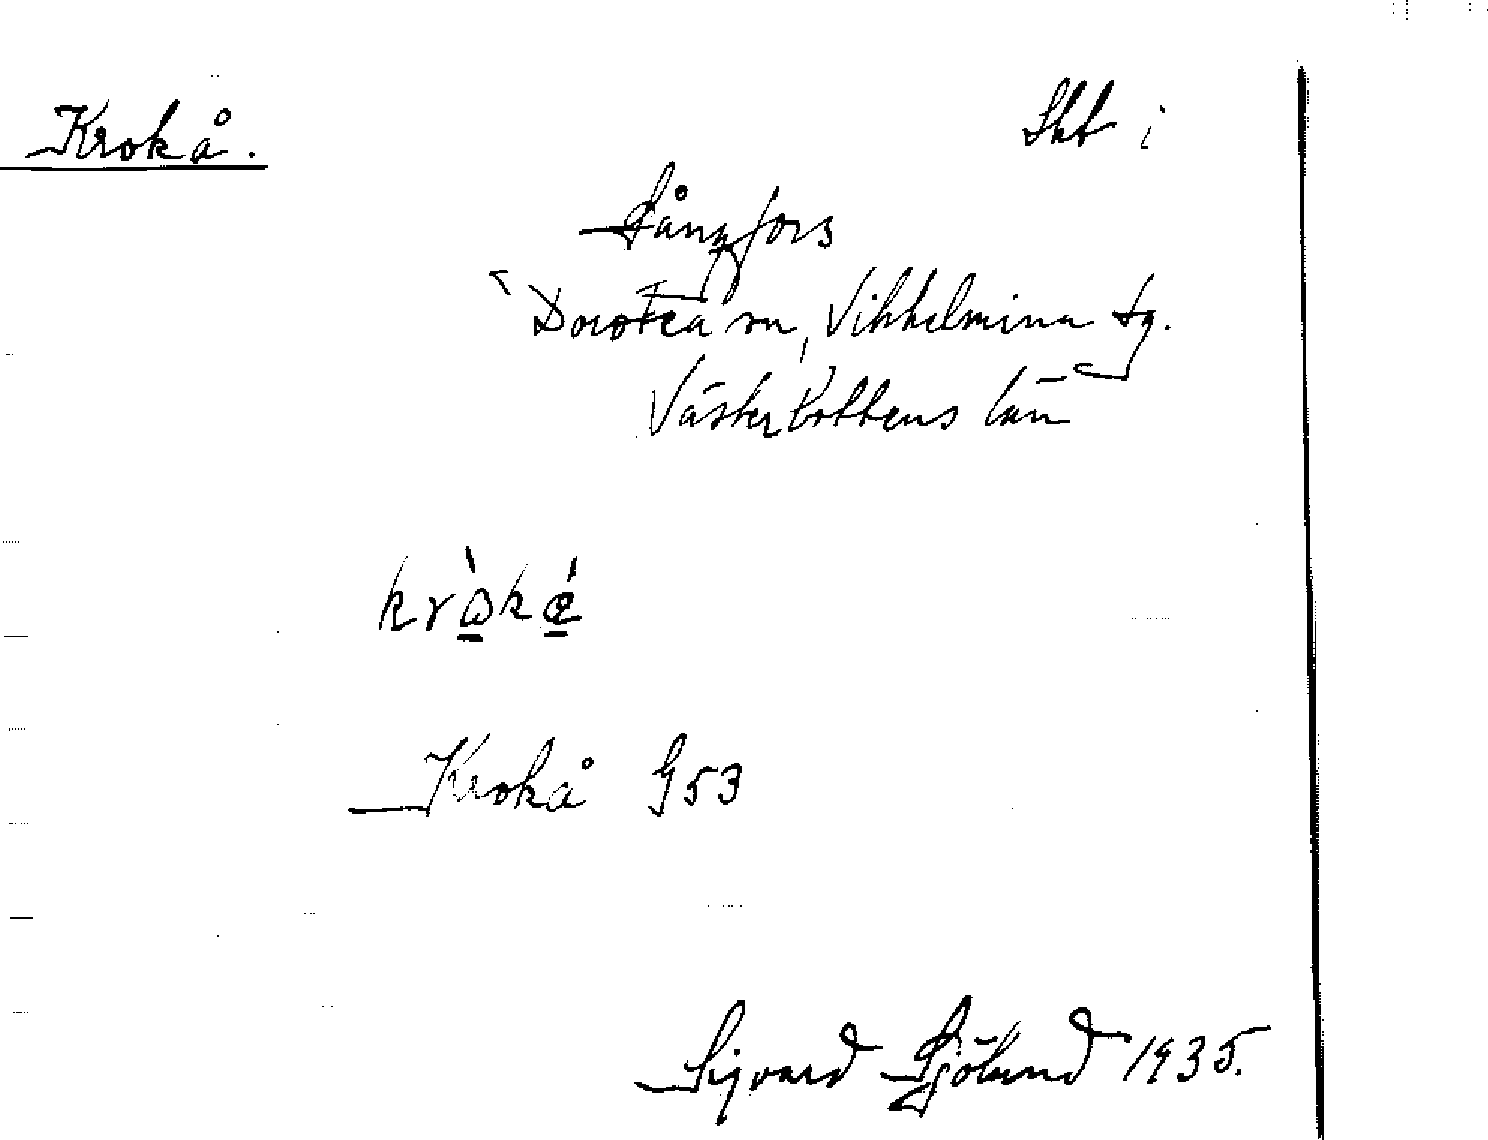 Krokå.
Skt i
Långfors
Dorotea sn, Vilhelmina tg.
Västerbottens län
Krokå G53
Sigvard Sjölund 1935.